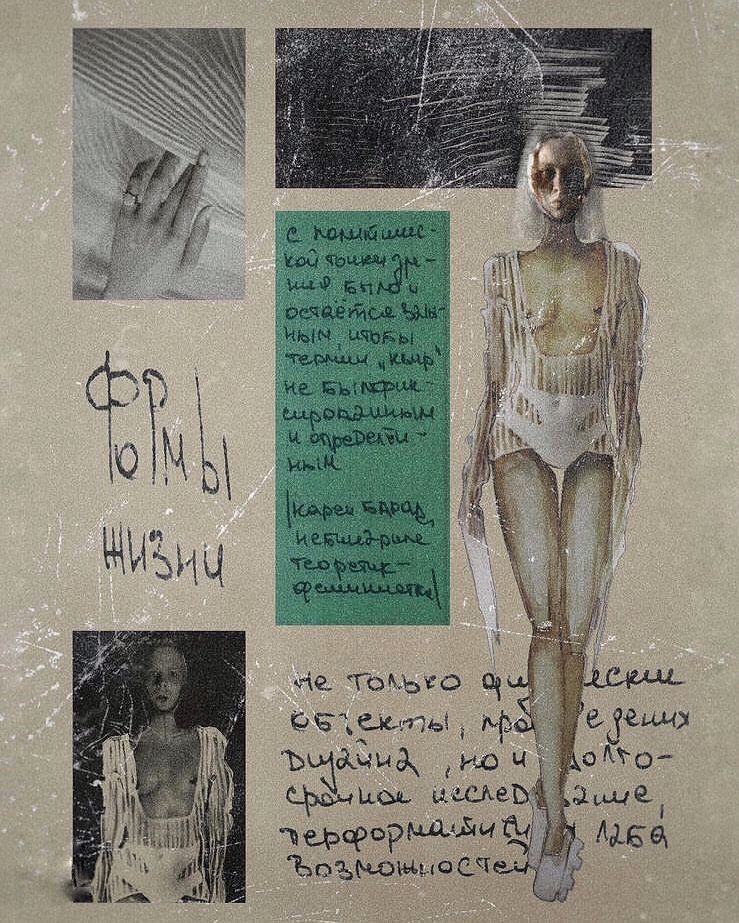 с политичес-
кой точки зре-
ния было и
остаётся важ-
ным, чтобы
термин „квир“
не был фик-
сированным
и определён-
ным
(Карен Барад,
небинарные
теоретик-
феминистка)
формы
жизни
не только физические
объекты, произведения
дизайна, но и долго-
срочное исследование,
перформативная лаба
возможностей